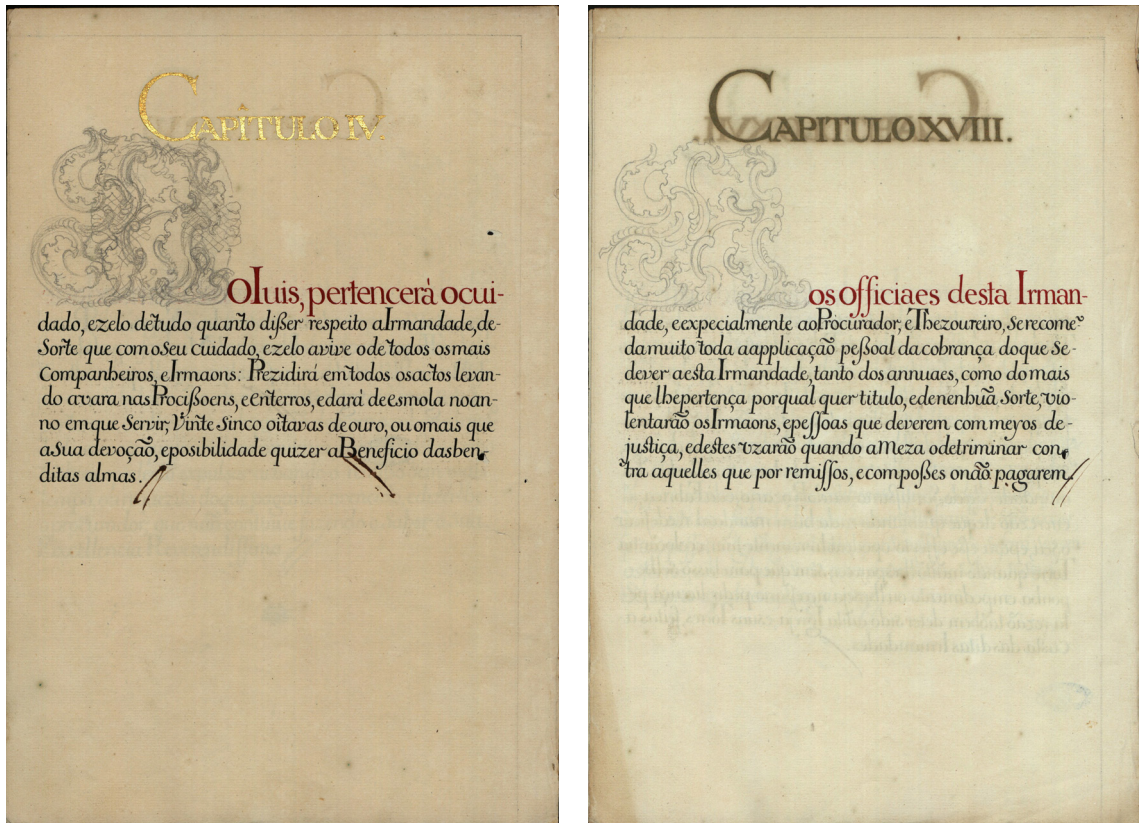 CAPÍTULO IV.
AO Iuis, pertencerá o cui-
dado, ezelo detudo quanto dißer respeito aIrmandade, de-
Sorte que com oSeu cuidado, ezelo avive odetodos osmais
Companheiros, eIrmaons: Prezidirá emtodos osactos levan-
do avara nas Procißoens, eenterros, edará deesmola noan-
no emque Servir, Vinte Sinco oitavas deouro, ou omais que
aSua devoção, eposibilidade quizer aBeneficio dasben-
ditas almas.
CAPITULO XVIII.
Aos officiaes desta Irman-
dade, eexpecialmente aoProcurador, éThezoureiro, Serecome
damuito toda aapplicação peßoal dacobrança doque Se-
dever aesta Irmandade, tanto dos annuaes, como domais
que lhepertença porqual quer titulo, edenenhuã Sorte, vio-
lentarão osIrmaons, epeſſoas que deverem commeyos de-
justiça, edestes vzarão quando aMeza odetriminar con-
tra aquelles que por remiſſos, ecompoßes onão pagarem.